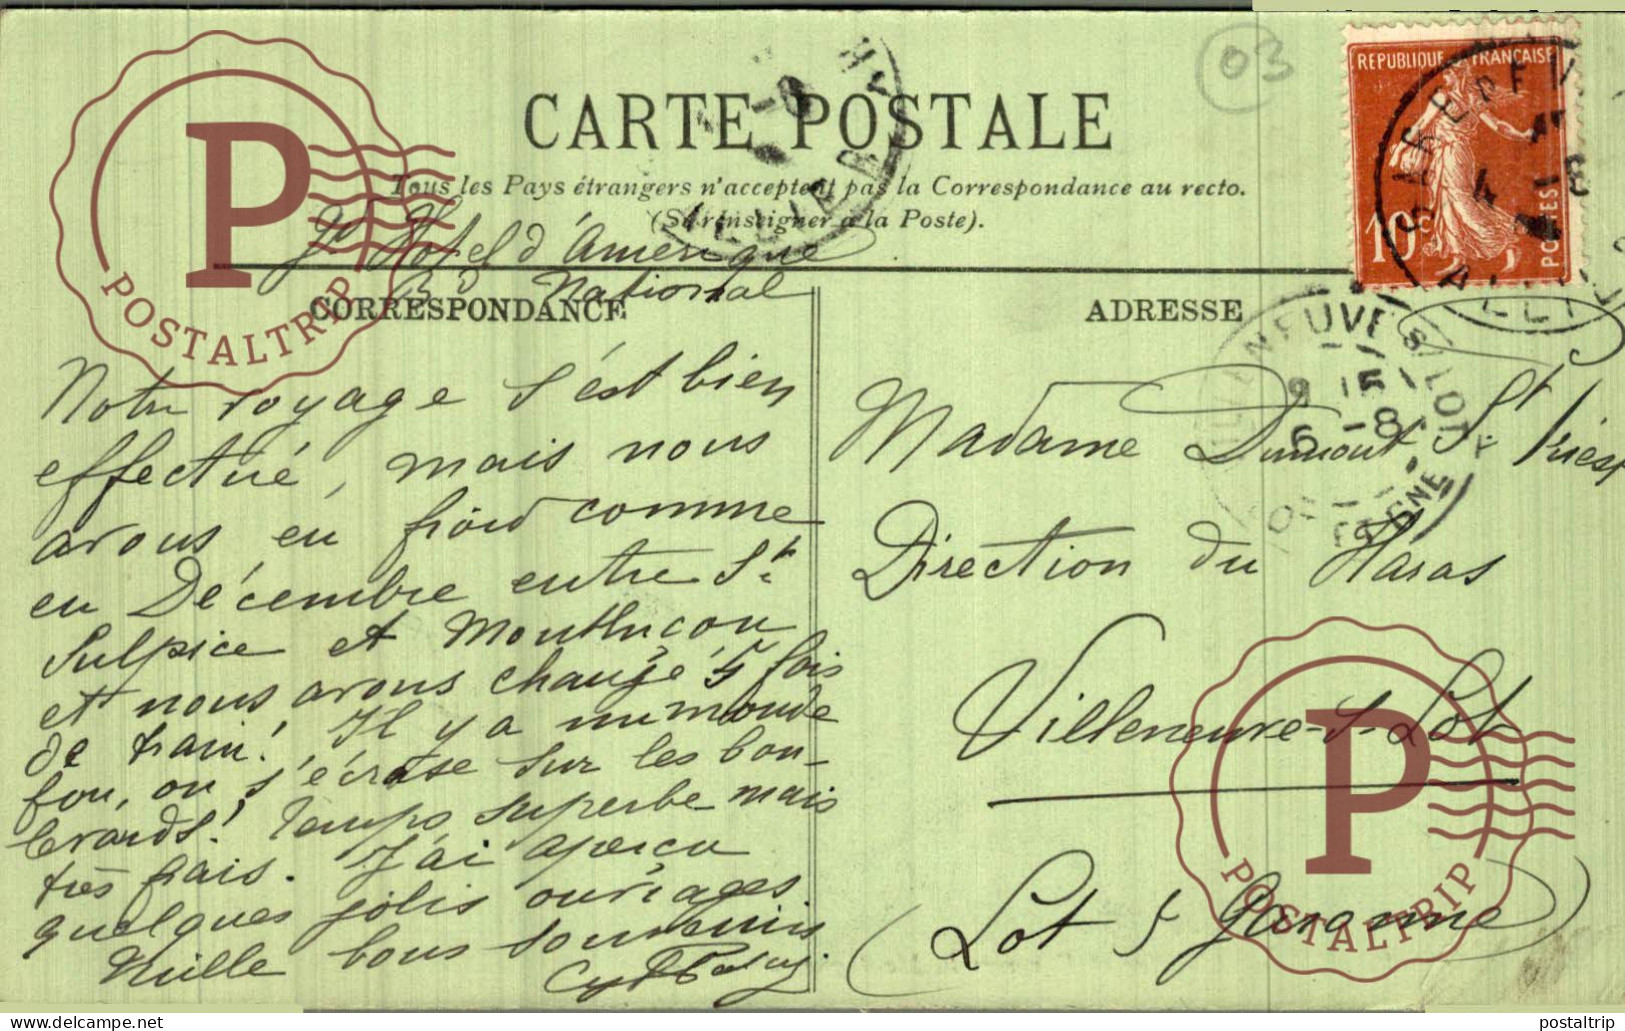 03
CARTE POSTALE
Tous les Pays étrangers n'acceptent pas la Correspondance au recto.
(Se renseigner à la Poste).
RÉPUBLIQUE FRANÇAISE
10c
POSTES
Gd Hotel d'Amérique
Bd National
CORRESPONDANCE
ADRESSE
Notre voyage s'est bien
effectué, mais nous
avons eu froid comme
en Décembre entre St
Sulpice et Montluçon
et nous avons changé 5 fois
de train! Il y a un monde
fou, on s'écrase sur les bou-
levards! Temps superbe mais
très frais. J'ai aperçu
quelques jolis ouvrages
Mille bons souvenirs
Madame Dumont St Priest
Direction du Haras
Villeneuve-s-Lot
(Lot & Garonne)
VILLENEUVE S/LOT
9 15
6 -8
ALLIER
POSTALTRIP
POSTALTRIP
Delcampe.net
postaltrip